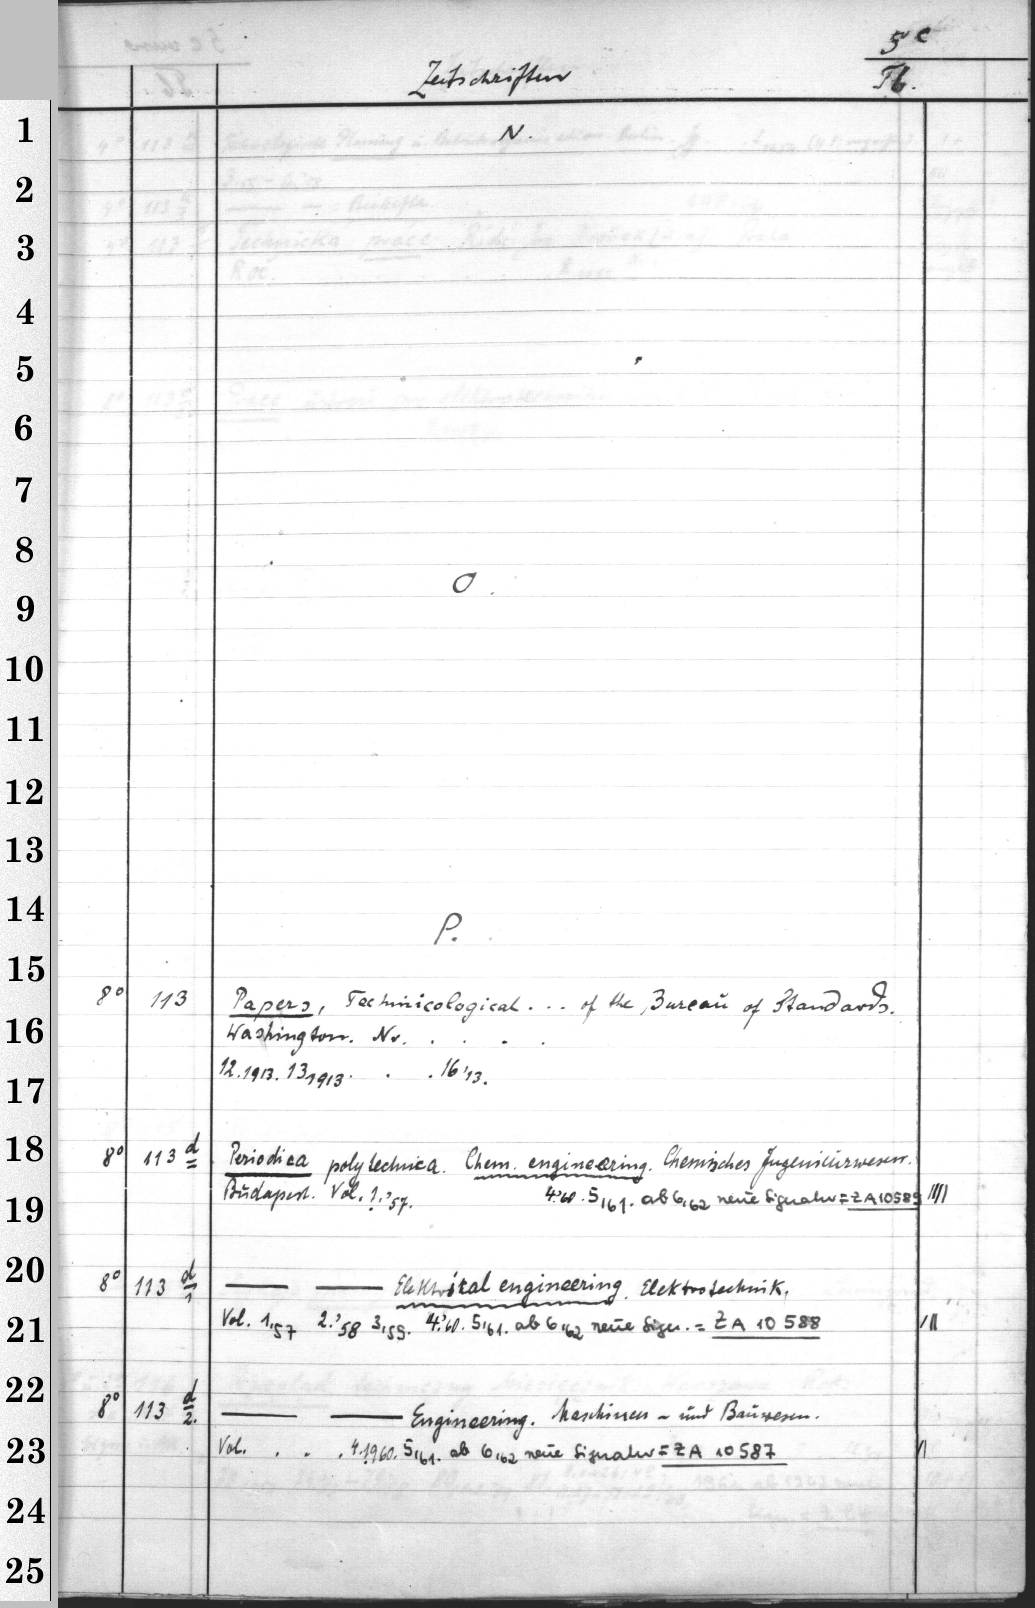 5 c
Zeitschriften
Tb.
N.
O.
P.
8° 113 Papers, Technicological ... of the Bureau of Standards.
Washington. No. . . . .
12.1913. 13 1913. . . 16'13.
8° 113 d Periodica polytechnica. Chem. engineering. Chemisches Ingenieurwesen.
Budapest. Vol. 1.'57. 4.'60. 5,'61. ab 6,'62 neue Signatur = ZA 10589 ||||
8° 113 d/1 —— —— Elektrical engineering. Elektrotechnik.
Vol. 1,57 2.'58 3,'59. 4.'60. 5,'61. ab 6,'62 neue Sign. = ZA 10 588 |||
8° 113 d/2. —— —— Engineering. Maschinen- und Bauwesen.
Vol. . . . 4.1960. 5,'61. ab 6,'62 neue Signatur = ZA 10587 ||
1
2
3
4
5
6
7
8
9
10
11
12
13
14
15
16
17
18
19
20
21
22
23
24
25